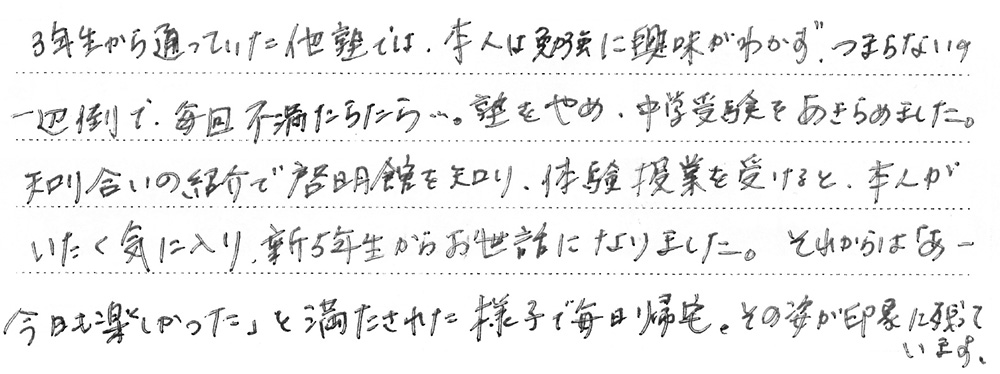 3年生から通っていた他塾では、本人は勉強に興味がわかず、つまらないの
一辺倒で、毎回不満たらたら…。塾をやめ、中学受験をあきらめました。
知り合いの紹介で啓明館を知り、体験授業を受けると、本人が
いたく気に入り、新5年生からお世話になりました。それからは「あー
今日も楽しかった」と満たされた様子で毎日帰宅。その姿が印象に残って
います。